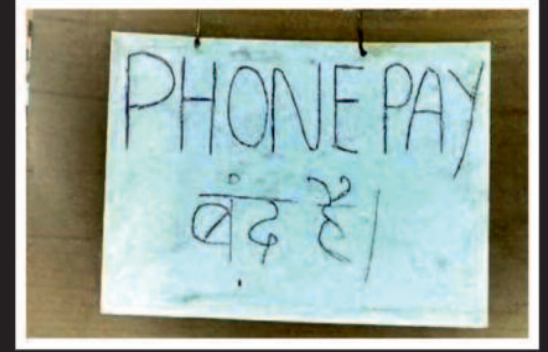 PHONE PAY
बंद है।